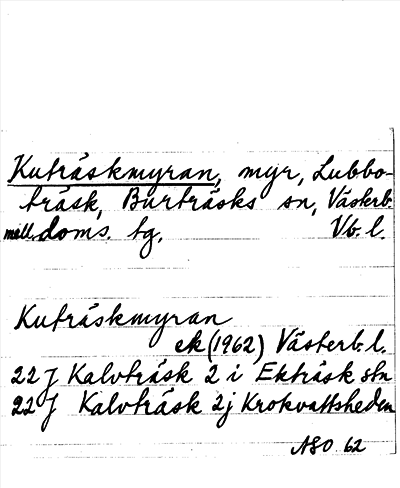 Kuträskmyran, myr, Lubbo-
träsk, Burträsks sn, Västerb.
mell. doms. tg, Vb. l.
Kuträskmyran
ek (1962) Västerb. l.
22 J Kalvträsk 2 i Ekträsk stn
22 J Kalvträsk 2j Krokvattsheden
ASO. 62